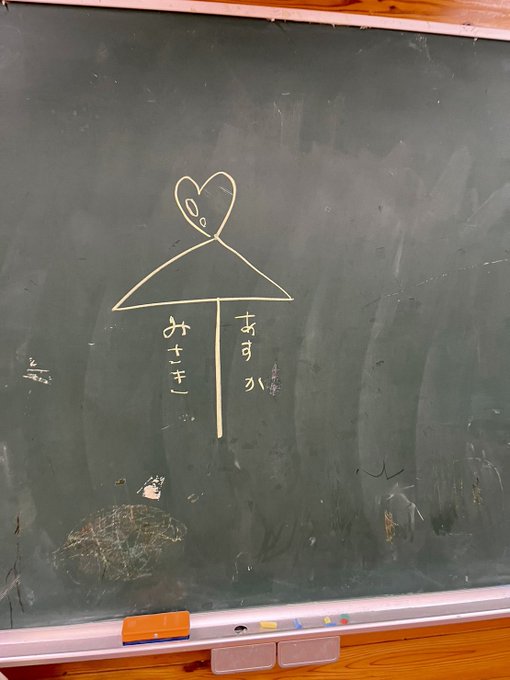 あすか
みさき